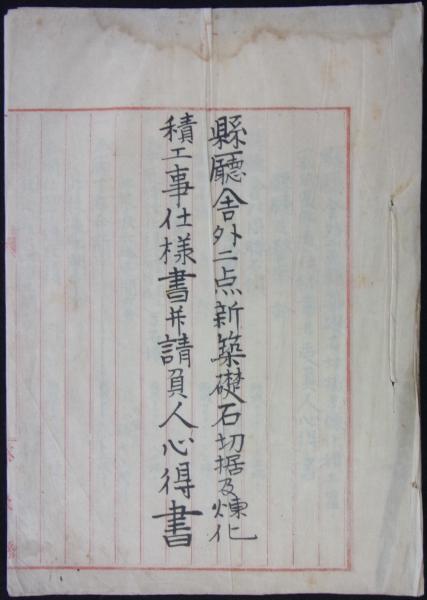 縣廳舎外二点新築礎石切据及煉化
積工事仕様書并請負人心得書